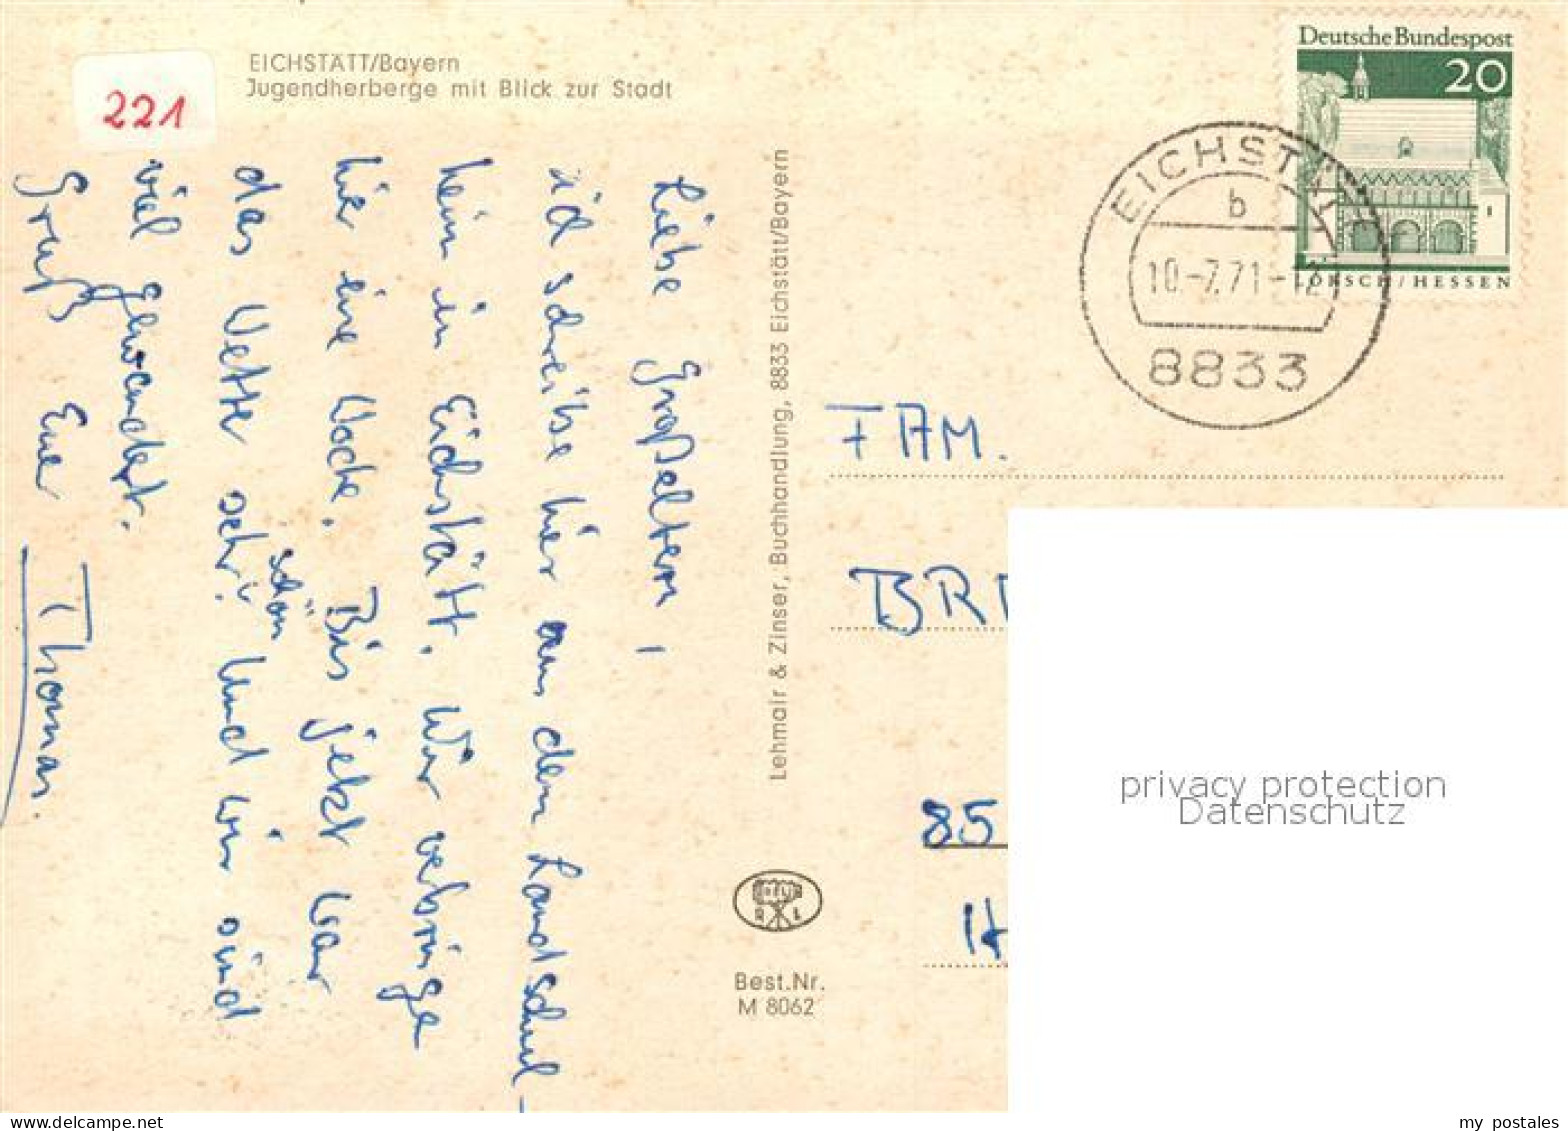 EICHSTÄTT/Bayern
Jugendherberge mit Blick zur Stadt
221
Liebe Großeltern!
ich schreibe hier aus dem Landschul-
heim in Eichstätt. Wir verbringe
hier eine Woche. Bis jetzt war
das Wetter sehr schön. Und wir sind
viel gewandert.
Gruß Euer Thomas.
Lehmair & Zinser, Buchhandlung, 8833 Eichstätt/Bayern
Best.Nr.
M 8062
Deutsche Bundespost
20
LORSCH/HESSEN
EICHSTÄTT
b
10.-7.71-12
8833
FAM.
BR
85
privacy protection
Datenschutz
www.delcampe.net
my_postales